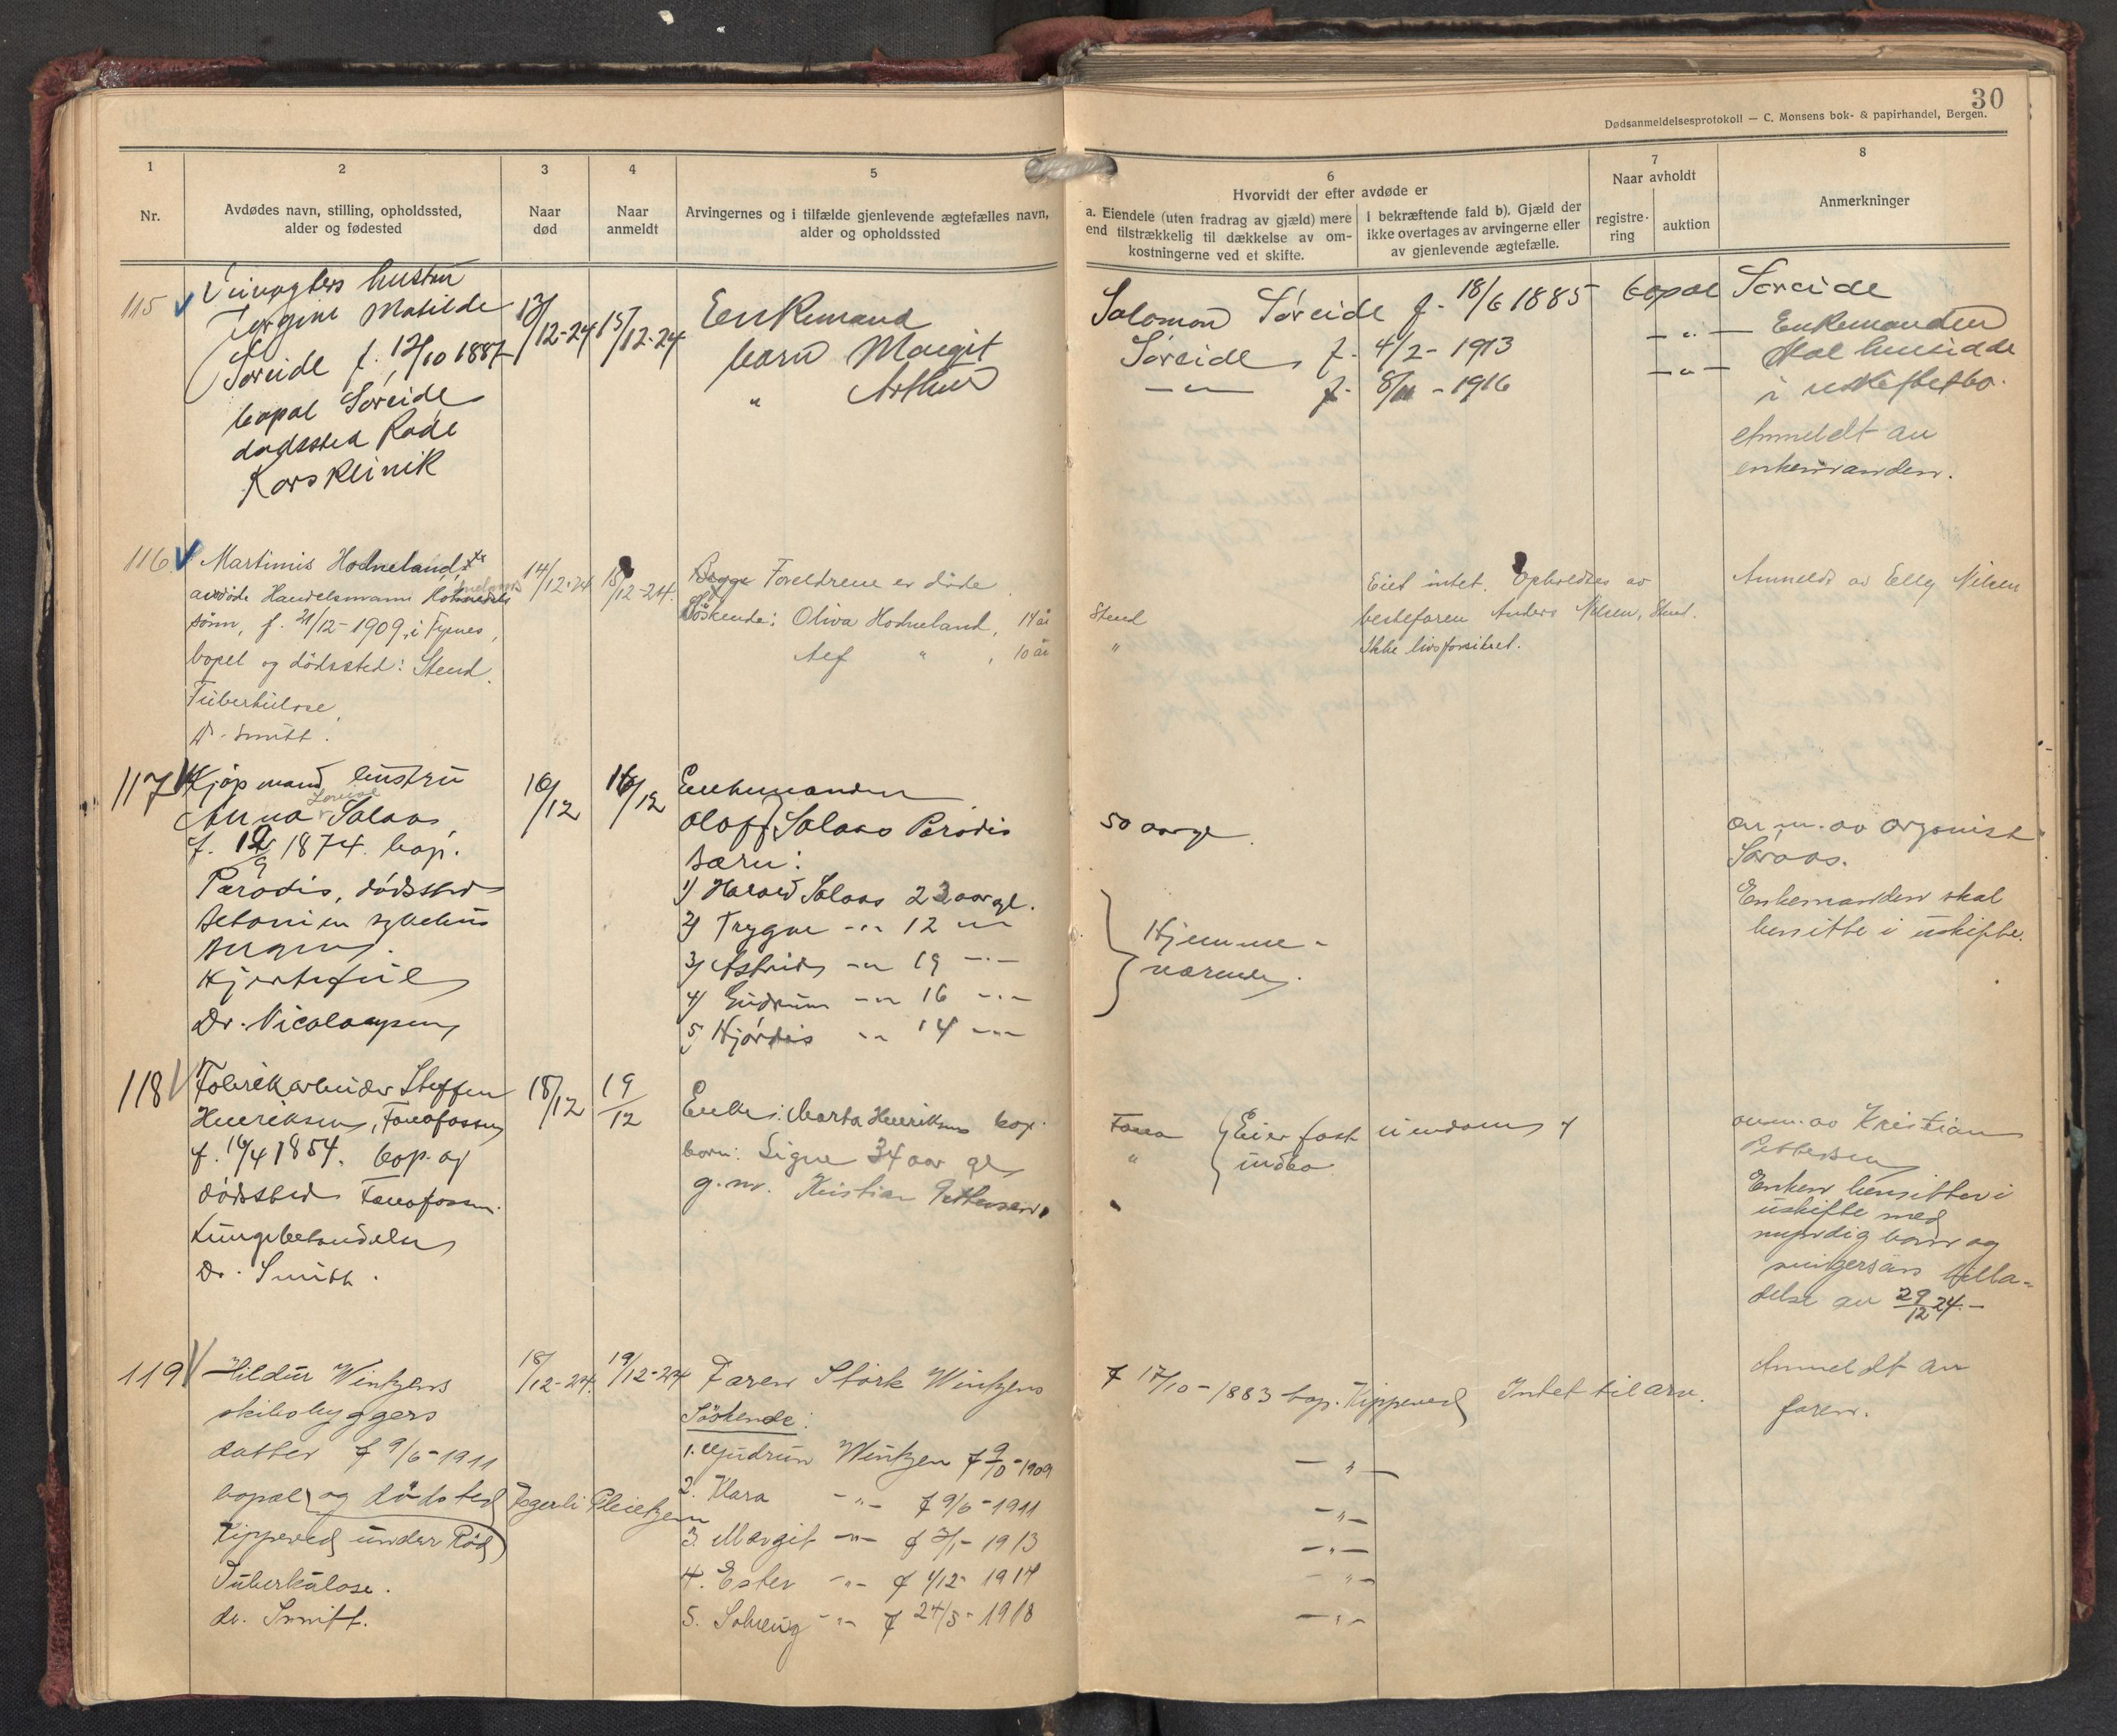 30
Dødsanmeldelsesprotokoll — C. Monsens bok- & papirhandel, Bergen.
1
Nr.
2
Avdødes navn, stilling, opholdssted,
alder og fødested
3
Naar
død
4
Naar
anmeldt
5
Arvingernes og i tilfælde gjenlevende ægtefælles navn,
alder og opholdssted
6
Hvorvidt der efter avdøde er
a. Eiendele (uten fradrag av gjæld) mere
end tilstrækkelig til dækkelse av om-
kostningerne ved et skifte.
I bekræftende fald b). Gjæld der
ikke overtages av arvingerne eller
av gjenlevende ægtefælle.
7
Naar avholdt
registre-
ring
auktion
8
Anmerkninger
115
hustru
Jørgine Matilde
Søreide f. 12/10 1887
bopæl Søreide
dødssted Røde
Kors Klinik
13/12-24
15/12-24
Enkemand Salomon Søreide f. 18/6 1885 bopæl Søreide
barn Margit Søreide f. 4/2 - 1913 — " —
" Arthur — " — f. 8/11 - 1916 — " —
Enkemanden
skal hensidde
i uskiftet bo.
Anmeldt av
enkemanden.
116
Martinus Hodneland,
avdøde Handelsmann
sønn, f. 21/12-1909, i Fyenes,
bopel og dødssted: Stend.
Tuberkulose,
Dr. Smitt.
14/12-24
15/12-24.
Begge Foreldrene er døde
Søskende: Oliva Hodneland, 14 år Stend
Alf " , 10 år "
Eiet intet. Opholdtes av
bestefaren Anders Nilsen, Stend.
Ikke livsforsikret.
Anmeldt av Elly Nilsen
117
Kjøpmand hustru
Anna Lovise Salaas,
f. 12/9 1874. bop.
Paradis, dødssted
Betanien sykehus
Bergen.
Hjertefeil
Dr. Nicolaysen
16/12
16/12
Enkemanden
Oloff Salaas Paradis 50 aar gl.
Barn:
1) Harald Salaas 23 aar gl.
2) Trygve —"— 12 —"—
3) Astrid —"— 19 —"—
4) Gudrun —"— 16 —"—
5) Hjørdis —"— 14 —"—
Hjemme-
værende.
anm. av organist
Søraas.
Enkemanden skal
hensitte i uskifte.
118
Fabrikarbeider Steffen
Henriksen, Fanafossen
f. 16/4 1854. bop. og
dødssted Fanafossen.
Lungebetændelse
Dr. Smitt.
18/12
19/12
Enke: Marta Henriksen bop. Fana
barn: Signe 34 aar gl. "
g. m. Kristian Pettersen "
Eier fast eiendom &
indbo
anm. av Kristian
Pettersen
Enken hensitter i
uskifte med
myndig barn og
svigersøns tilla-
delse av 29/12 24.-
119
Hildur Wintzens
skibsbyggers
datter f 9/6-1911
bopæl og dødsted
Kippeved under Rød
Tuberkulose.
dr. Smitt.
18/12-24.
19/12-24
Faren Stark Wintzens f 17/10-1883 bop. Kippeved Intet til arv.
Søskende:
1. Gudrun Wintzen f 9/10-1909 — " —
2. Klara — " — f 9/6-1911 — " —
3. Margit — " — f 3/1-1913 — " —
4. Ester — " — f 1/12-1914 — " —
5. Solveig — " — f 24/5-1918 — " —
Anmeldt av
faren.